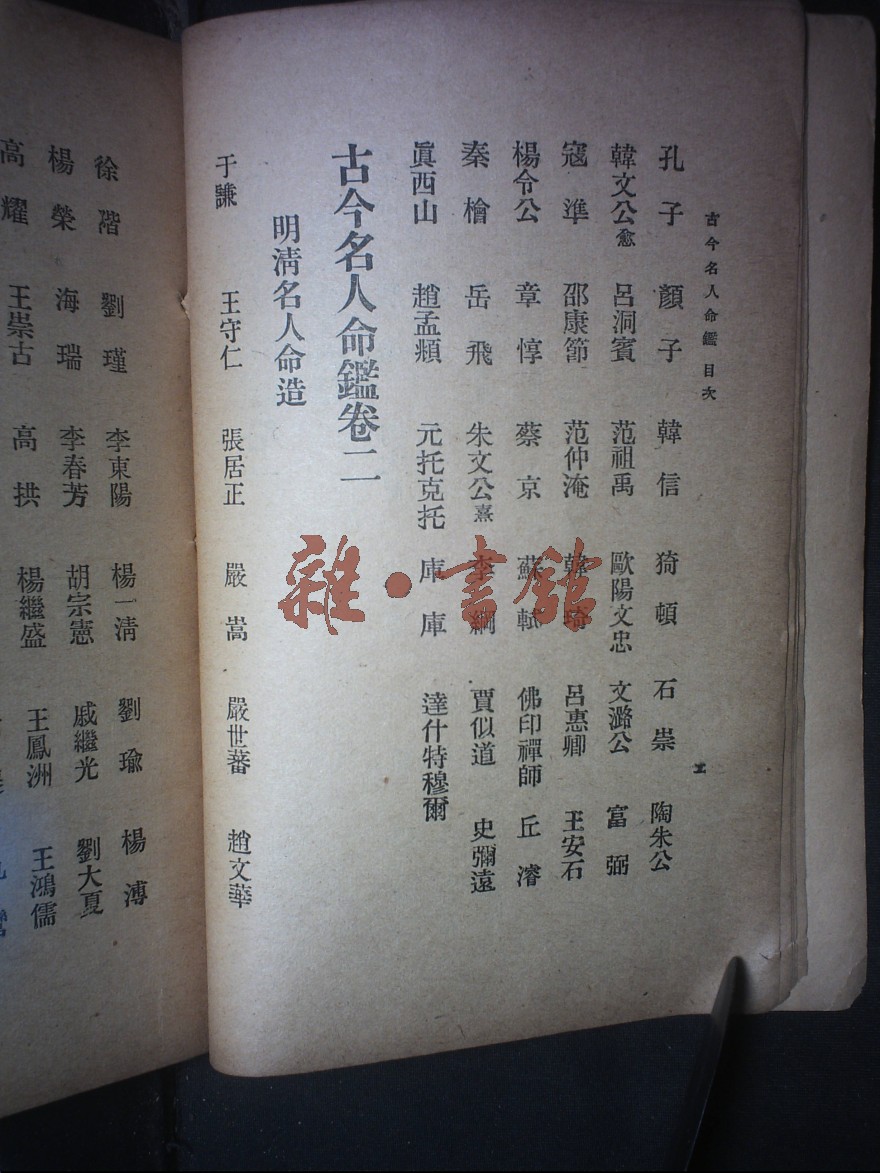 古今名人命鑑 目次
孔子 顏子 韓信 猗頓 石崇 陶朱公
韓文公愈 呂洞賓 范祖禹 歐陽文忠 文潞公 富弼
寇準 邵康節 范仲淹 韓琦 呂惠卿 王安石
楊令公 章惇 蔡京 蘇軾 佛印禪師 丘濬
秦檜 岳飛 朱文公熹 李綱 賈似道 史彌遠
眞西山 趙孟頫 元托克托 庫庫 達什特穆爾
古今名人命鑑卷二
明淸名人命造
于謙 王守仁 張居正 嚴嵩 嚴世蕃 趙文華
徐階 劉瑾 李東陽 楊一淸 劉瑜 楊溥
楊榮 海瑞 李春芳 胡宗憲 戚繼光 劉大夏
高耀 王崇古 高拱 楊繼盛 王鳳洲 王鴻儒
雜·書館